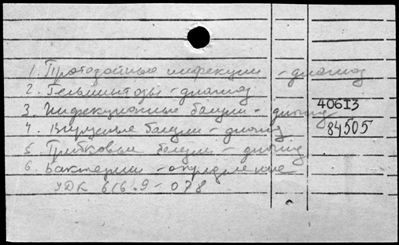 1. Протозойные инфекции - диагноз
2. Гельминтозы - диагноз
3. Инфекционные болезни - диагноз
40613
4. Вирусные болезни - диагноз
84505
5. Грибковые болезни - диагноз
6. Бактерии - определение
УДК 616.9-078